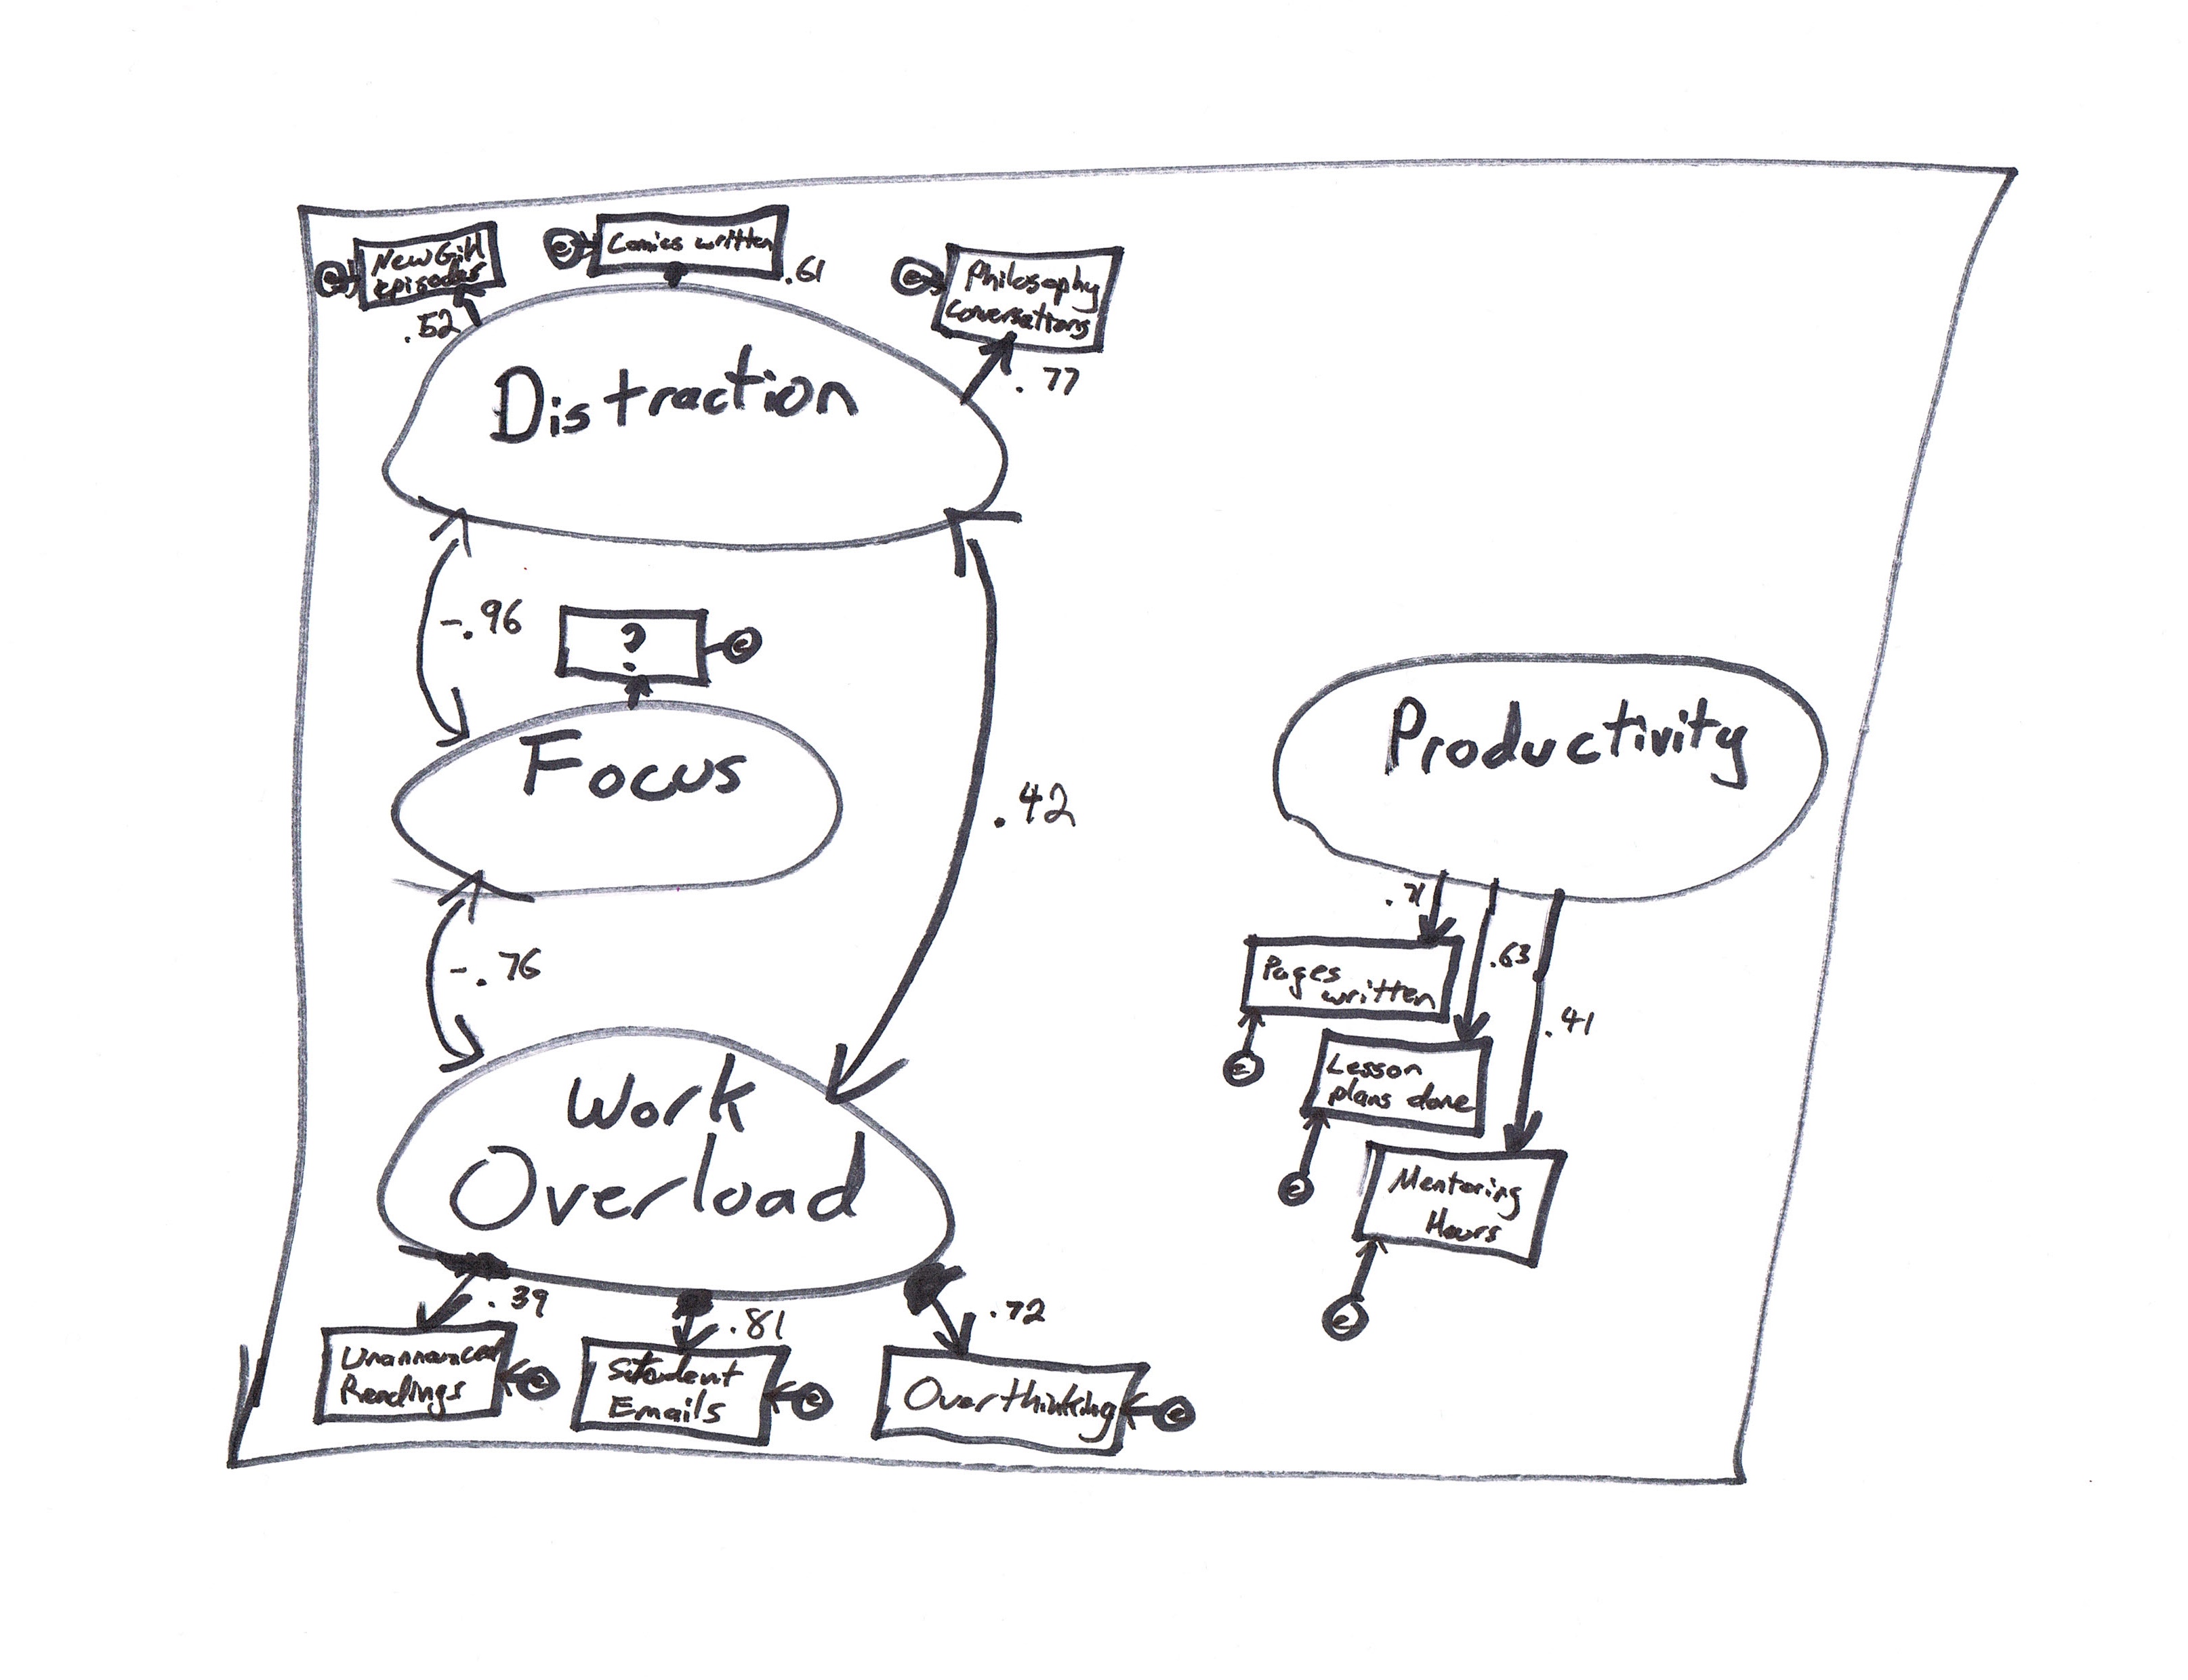 New Girl
episodes
e
.52
e
Comics written
.61
e
Philosophy
Conversations
.77
Distraction
-.96
?
e
Focus
.42
-.76
Work
Overload
.39
.81
.72
Readings
e
Student
Emails
e
Overthinking
e
Productivity
.71
.63
.41
Pages
written
e
Lesson
plans done
e
Mentoring
Hours
e